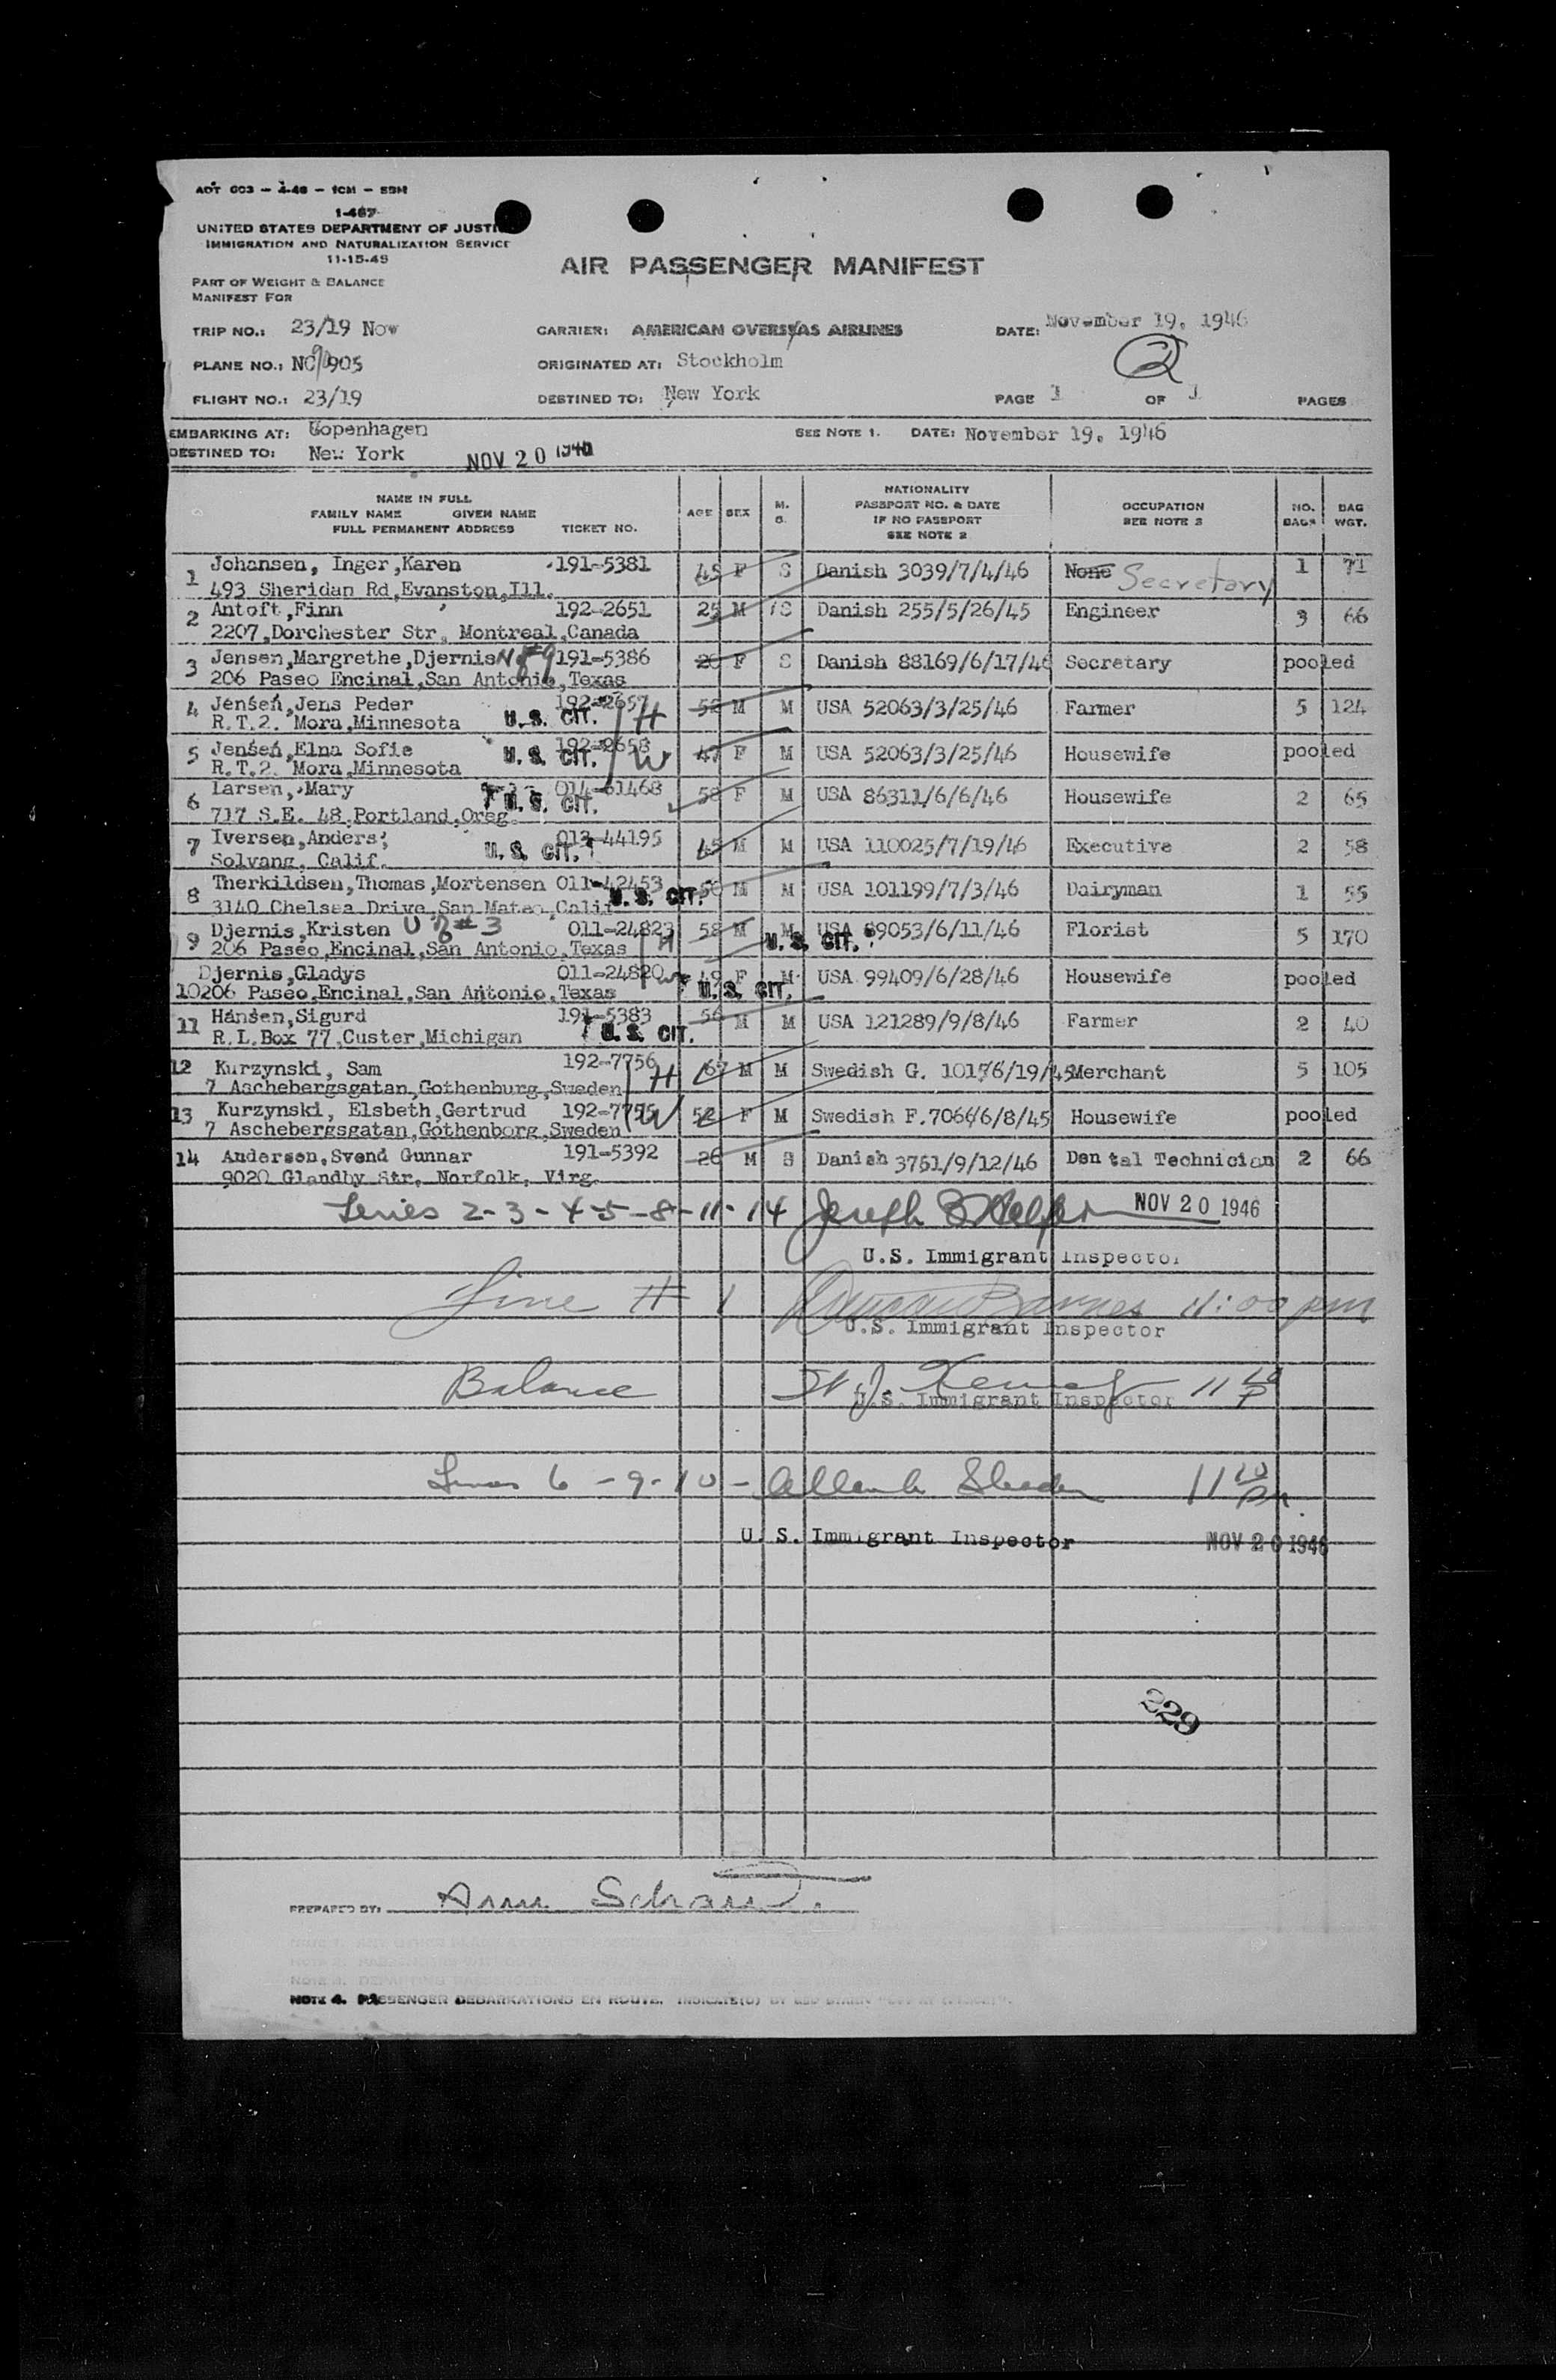 ADT 603 - 4-46 - 1CM - SBM
1-467
UNITED STATES DEPARTMENT OF JUSTI
IMMIGRATION AND NATURALIZATION SERVICE
11-15-45
AIR PASSENGER MANIFEST
PART OF WEIGHT & BALANCE
MANIFEST FOR
TRIP NO.: 23/19 Nov CARRIER: AMERICAN OVERSEAS AIRLINES DATE: November 19, 1946
PLANE NO.: NC 90905 ORIGINATED AT: Stockholm 2
FLIGHT NO.: 23/19 DESTINED TO: New York PAGE 1 OF 1 PAGES
EMBARKING AT: Copenhagen SEE NOTE 1. DATE: November 19, 1946
DESTINED TO: New York NOV 20 1946
NAME IN FULL
FAMILY NAME GIVEN NAME
FULL PERMANENT ADDRESS TICKET NO. AGE SEX M. S. NATIONALITY PASSPORT NO. & DATE IF NO PASSPORT SEE NOTE 2 OCCUPATION SEE NOTE 3 NO. BAGS BAG WGT.
1 Johansen, Inger,Karen 191-5381 45 F S Danish 3039/7/4/46 None Secretary 1 71
493 Sheridan Rd,Evanston,Ill.
2 Antoft,Finn 192-2651 25 M S Danish 255/5/26/45 Engineer 3 66
2207,Dorchester Str, Montreal,Canada
3 Jensen,Margrethe,Djernis N of #9 191-5386 26 F S Danish 88169/6/17/46 Secretary pooled
206 Paseo Encinal,San Antonio,Texas
4 Jensen,Jens Peder 192-2657 52 M M USA 52063/3/25/46 Farmer 5 124
R.T.2. Mora,Minnesota U.S. CIT. H
5 Jensen,Elna Sofie 192-2658 47 F M USA 52063/3/25/46 Housewife pooled
R.T.2. Mora,Minnesota U.S. CIT. W
6 Larsen, Mary 014-61468 58 F M USA 86311/6/6/46 Housewife 2 65
717 S.E. 48,Portland,Oreg. U.S. CIT.
7 Iversen,Anders, 013-44195 45 M M USA 110025/7/19/46 Executive 2 58
Solvang, Calif. U.S. CIT.
8 Therkildsen,Thomas,Mortensen 011-42453 56 M M USA 101199/7/3/46 Dairyman 1 55
3140 Chelsea Drive,San Mateo,Calif U.S. CIT.
9 Djernis,Kristen U of #3 011-24823 58 M M USA 89053/6/11/46 Florist 5 170
206 Paseo,Encinal,San Antonio,Texas H U.S. CIT.
Djernis,Gladys 011-24820 49 F M USA 99409/6/28/46 Housewife pooled
10206 Paseo,Encinal,San Antonio,Texas W U.S. CIT.
11 Hansen,Sigurd 191-5383 56 M M USA 121289/9/8/46 Farmer 2 40
R.L.Box 77,Custer,Michigan U.S. CIT.
12 Kurzynski, Sam 192-7756 67 M M Swedish G. 10176/19/45 Merchant 5 105
7 Aschebergsgatan,Gothenburg,Sweden H
13 Kurzynski, Elsbeth,Gertrud 192-7755 52 F M Swedish F.7066/6/8/45 Housewife pooled
7 Aschebergsgatan,Gothenborg,Sweden W
14 Andersen,Svend Gunnar 191-5392 26 M S Danish 3751/9/12/46 Dental Technician 2 66
9020 Glandby Str, Norfolk, Virg.
Lines 2-3-4-5-8-11-14 Joseph NOV 20 1946
U.S. Immigrant Inspector
Line # 1 Duncan Barnes 11:00 pm
U.S. Immigrant Inspector
Balance 11 10 P
U.S. Immigrant Inspector
Lines 6-9-10- 11 10 Pm
U. S. Immigrant Inspector NOV 20 1946
229
PREPARED BY:
NOTE 4. PASSENGER DEBARKATIONS EN ROUTE.